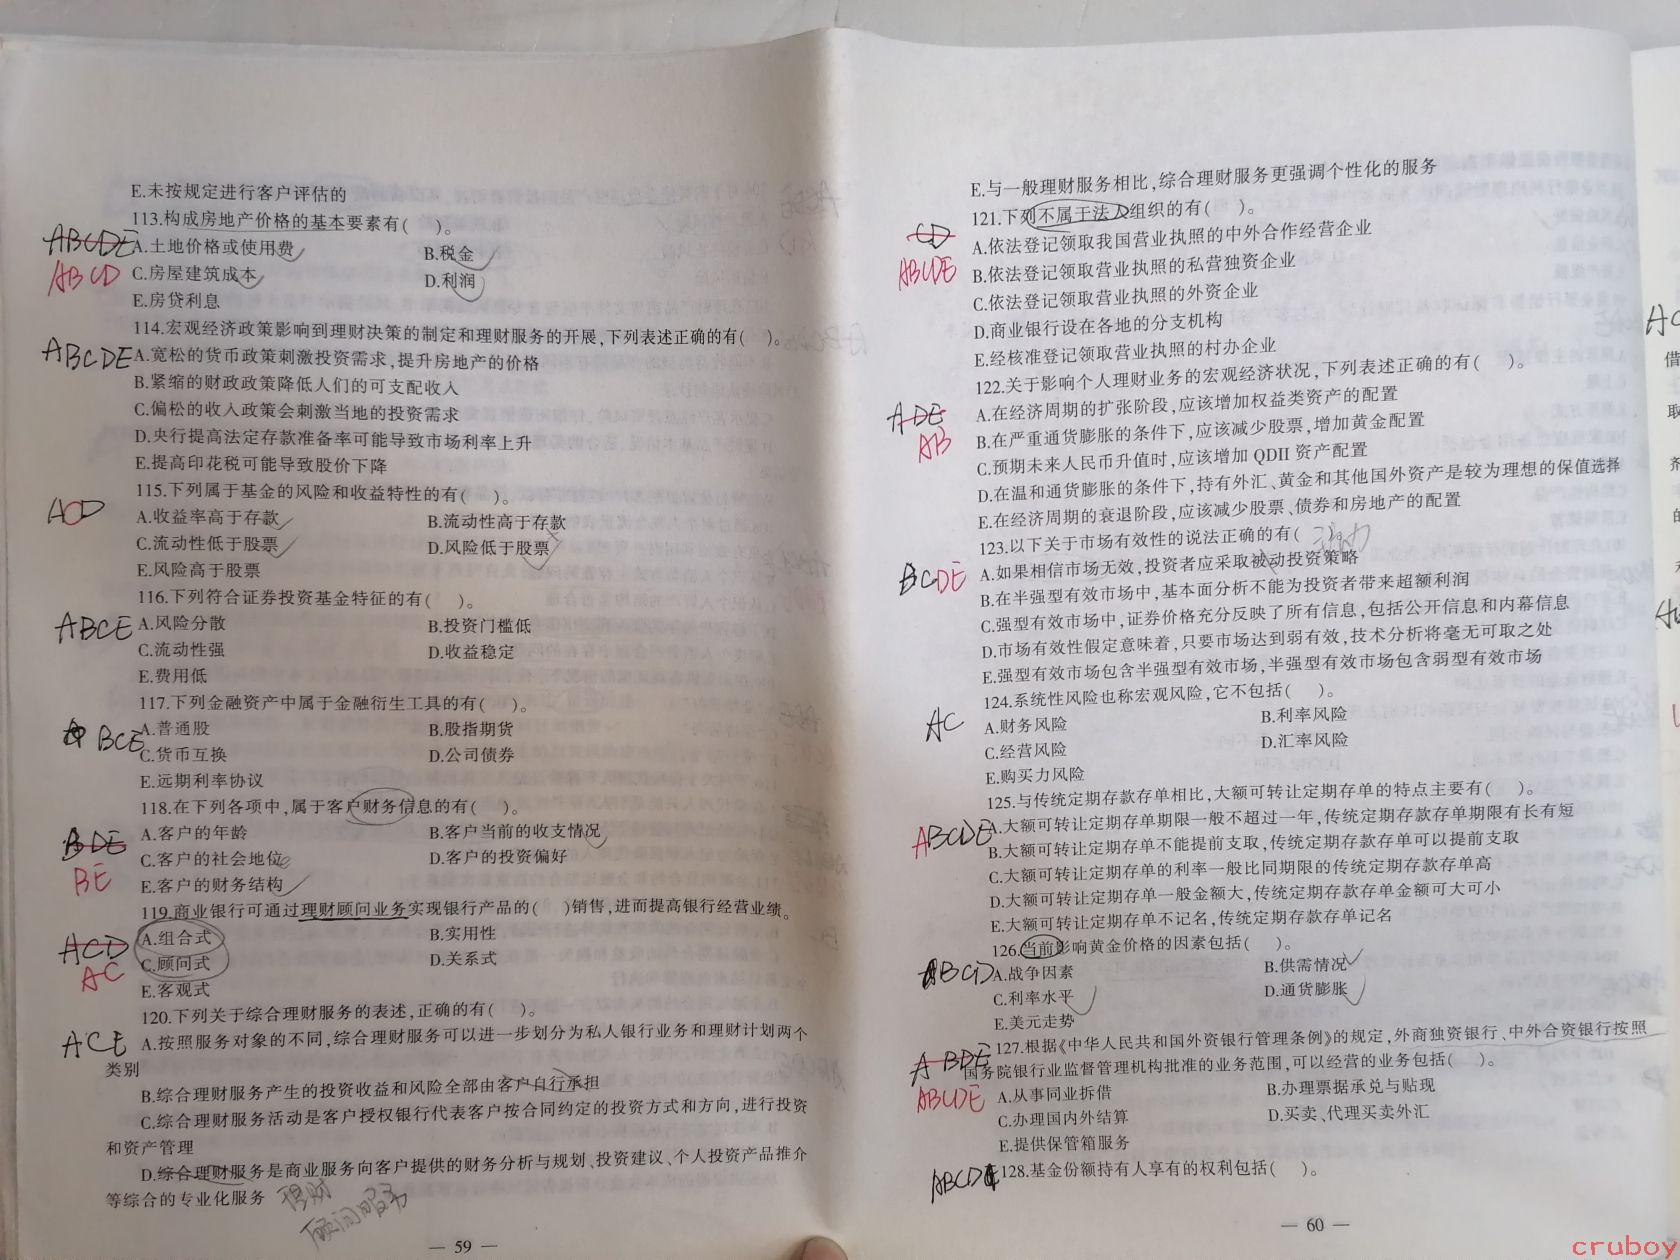 E.未按规定进行客户评估的
113.构成房地产价格的基本要素有(　　)。
ABCDE
A.土地价格或使用费
B.税金
ABCD
C.房屋建筑成本
D.利润
E.房贷利息
114.宏观经济政策影响到理财决策的制定和理财服务的开展,下列表述正确的有(　　)。
ABCDE
A.宽松的货币政策刺激投资需求,提升房地产的价格
B.紧缩的财政政策降低人们的可支配收入
C.偏松的收入政策会刺激当地的投资需求
D.央行提高法定存款准备率可能导致市场利率上升
E.提高印花税可能导致股价下降
115.下列属于基金的风险和收益特性的有(　　)。
ACD
A.收益率高于存款
B.流动性高于存款
C.流动性低于股票
D.风险低于股票
E.风险高于股票
116.下列符合证券投资基金特征的有(　　)。
ABCE
A.风险分散
B.投资门槛低
C.流动性强
D.收益稳定
E.费用低
117.下列金融资产中属于金融衍生工具的有(　　)。
BCE
A.普通股
B.股指期货
C.货币互换
D.公司债券
E.远期利率协议
118.在下列各项中,属于客户财务信息的有(　　)。
BDE
A.客户的年龄
B.客户当前的收支情况
BE
C.客户的社会地位
D.客户的投资偏好
E.客户的财务结构
119.商业银行可通过理财顾问业务实现银行产品的(　　)销售,进而提高银行经营业绩。
ACD
A.组合式
B.实用性
AC
C.顾问式
D.关系式
E.客观式
120.下列关于综合理财服务的表述,正确的有(　　)。
ACE
A.按照服务对象的不同,综合理财服务可以进一步划分为私人银行业务和理财计划两个
类别
B.综合理财服务产生的投资收益和风险全部由客户自行承担
C.综合理财服务活动是客户授权银行代表客户按合同约定的投资方式和方向,进行投资
和资产管理
D.综合理财服务是商业服务向客户提供的财务分析与规划、投资建议、个人投资产品推介
等综合的专业化服务
理财
顾问服务
— 59 —
E.与一般理财服务相比,综合理财服务更强调个性化的服务
121.下列不属于法人组织的有(　　)。
CD
ABCDE
A.依法登记领取我国营业执照的中外合作经营企业
B.依法登记领取营业执照的私营独资企业
C.依法登记领取营业执照的外资企业
D.商业银行设在各地的分支机构
E.经核准登记领取营业执照的村办企业
122.关于影响个人理财业务的宏观经济状况,下列表述正确的有(　　)。
ADE
AB
A.在经济周期的扩张阶段,应该增加权益类资产的配置
B.在严重通货膨胀的条件下,应该减少股票,增加黄金配置
C.预期未来人民币升值时,应该增加 QDII 资产配置
D.在温和通货膨胀的条件下,持有外汇、黄金和其他国外资产是较为理想的保值选择
E.在经济周期的衰退阶段,应该减少股票、债券和房地产的配置
123.以下关于市场有效性的说法正确的有(
主动
BCDE
A.如果相信市场无效,投资者应采取被动投资策略
B.在半强型有效市场中,基本面分析不能为投资者带来超额利润
C.强型有效市场中,证券价格充分反映了所有信息,包括公开信息和内幕信息
D.市场有效性假定意味着,只要市场达到弱有效,技术分析将毫无可取之处
E.强型有效市场包含半强型有效市场,半强型有效市场包含弱型有效市场
124.系统性风险也称宏观风险,它不包括(　　)。
AC
A.财务风险
B.利率风险
C.经营风险
D.汇率风险
E.购买力风险
125.与传统定期存款存单相比,大额可转让定期存单的特点主要有(　　)。
ABCDE
A.大额可转让定期存单期限一般不超过一年,传统定期存款存单期限有长有短
B.大额可转让定期存单不能提前支取,传统定期存款存单可以提前支取
C.大额可转让定期存单的利率一般比同期限的传统定期存款存单高
D.大额可转让定期存单一般金额大,传统定期存款存单金额可大可小
E.大额可转让定期存单不记名,传统定期存款存单记名
126.当前影响黄金价格的因素包括(　　)。
ABCD
A.战争因素
B.供需情况
C.利率水平
D.通货膨胀
E.美元走势
127.根据《中华人民共和国外资银行管理条例》的规定,外商独资银行、中外合资银行按照
ABDE
国务院银行业监督管理机构批准的业务范围,可以经营的业务包括(　　)。
ABCDE
A.从事同业拆借
B.办理票据承兑与贴现
C.办理国内外结算
D.买卖、代理买卖外汇
E.提供保管箱服务
ABCD
128.基金份额持有人享有的权利包括(　　)。
— 60 —
借
取
cruboy